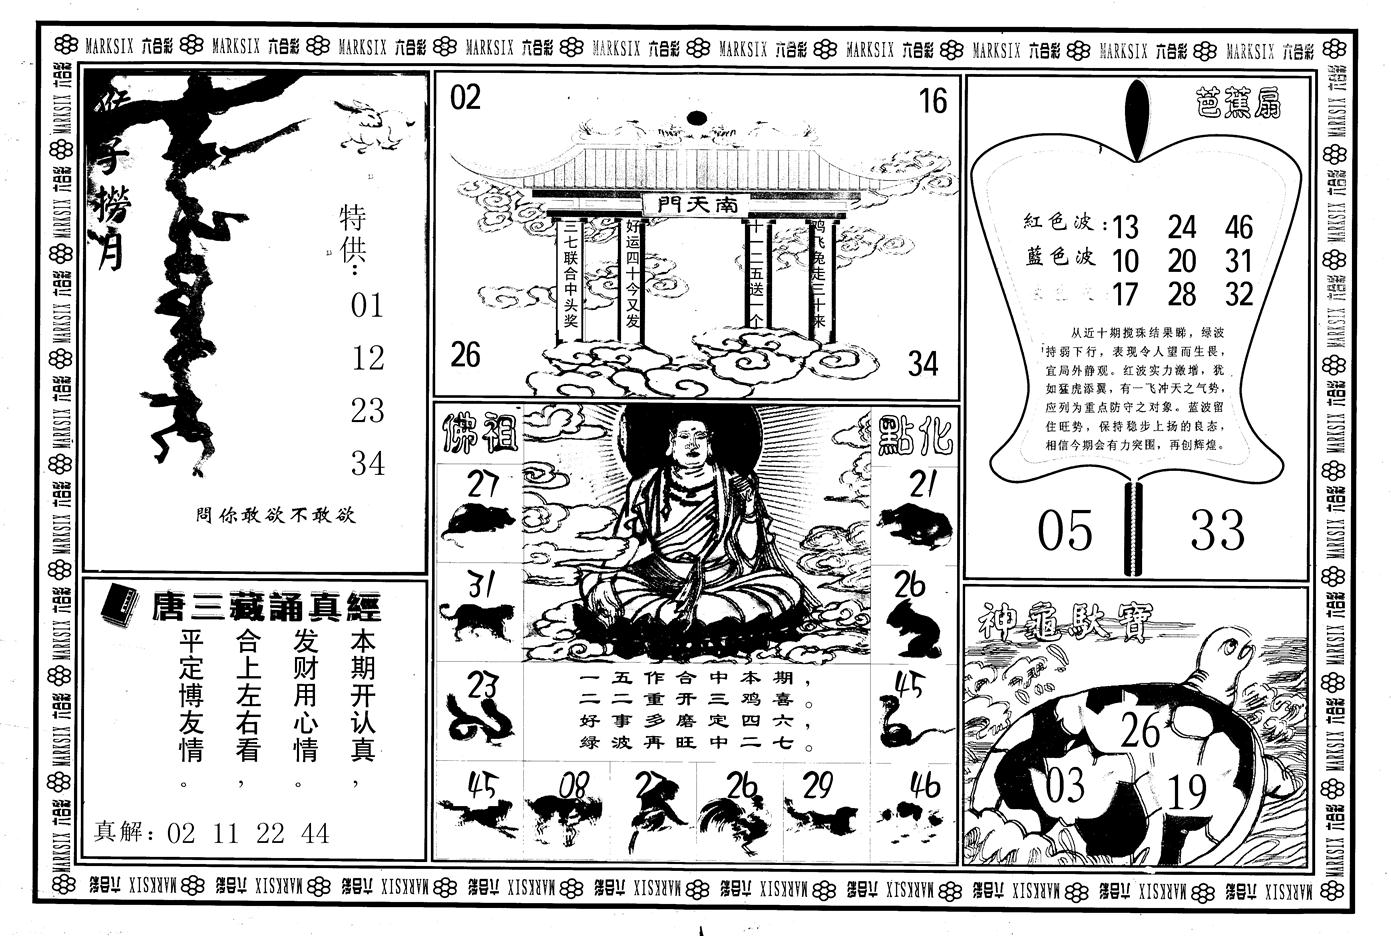 MARKSIX 六合彩 MARKSIX 六合彩 MARKSIX 六合彩 MARKSIX 六合彩 MARKSIX 六合彩 MARKSIX 六合彩 MARKSIX 六合彩 MARKSIX 六合彩 MARKSIX 六合彩 MARKSIX 六合彩
猴子撈月
特供：
01
12
23
34
問你敢欲不敢欲
02
16
南天門
三七联合中头奖
好运四十今又发
十一二五送一个
鸡飞兔走三十来
26
34
芭蕉扇
紅色波：13 24 46
藍色波 10 20 31
17 28 32
从近十期搅珠结果睇，绿波
持弱下行，表现令人望而生畏，
宜局外静观。红波实力激增，犹
如猛虎添翼，有一飞冲天之气势，
应列为重点防守之对象。蓝波留
住旺势，保持稳步上扬的良态，
相信今期会有力突围，再创辉煌。
05
33
佛祖
點化
27
21
31
26
23
45
一五作合中本期，
二二重开三鸡喜。
好事多磨定四六，
绿波再旺中二七。
45 08 27 26 29 46
唐三藏誦真經
本期开认真，
发财用心情。
合上左右看，
平定博友情。
真解：02 11 22 44
神龜馱寶
26
03
19
MARKSIX 六合彩 MARKSIX 六合彩 MARKSIX 六合彩 MARKSIX 六合彩 MARKSIX 六合彩 MARKSIX 六合彩 MARKSIX 六合彩 MARKSIX 六合彩 MARKSIX 六合彩 MARKSIX 六合彩